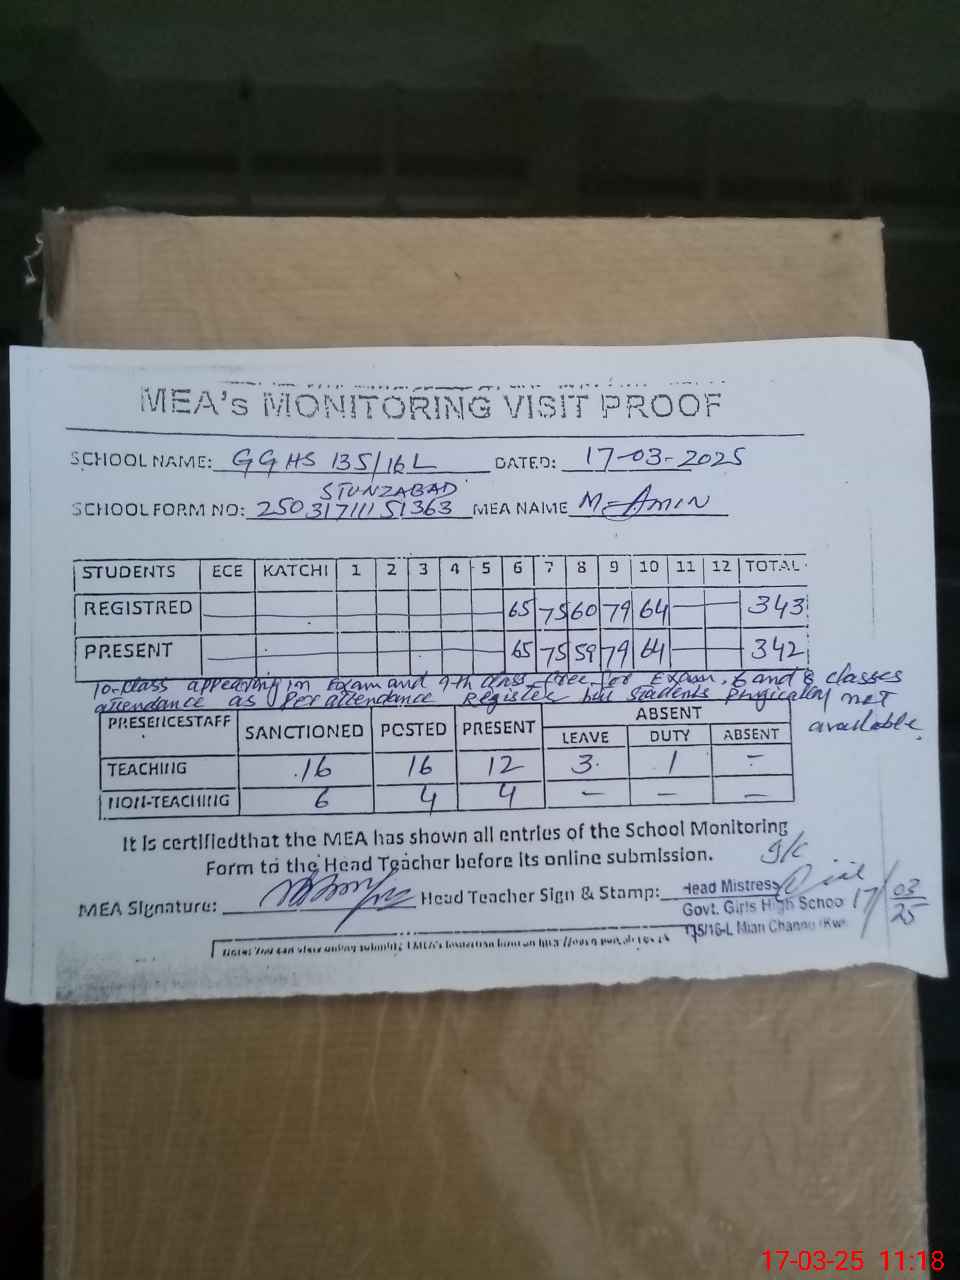 MEA's MONITORING VISIT PROOF
SCHOOL NAME: GGHS 135/16L DATED: 17-03-2025
STUNZABAD
SCHOOL FORM NO: 25031711151363 MEA NAME M-Amin
STUDENTS ECE KATCHI 1 2 3 4 5 6 7 8 9 10 11 12 TOTAL
REGISTRED 65 75 60 79 64 343
PRESENT 65 75 59 79 64 342
10-class appearing in Exam and 9th class free for Exam. 6 and 8 classes
attendance as per attendance Register but students physically not
available
PRESENCESTAFF SANCTIONED POSTED PRESENT ABSENT
LEAVE DUTY ABSENT
TEACHING 16 16 12 3 1 -
NON-TEACHING 6 4 4 - - -
It is certifiedthat the MEA has shown all entries of the School Monitoring
Form to the Head Teacher before its online submission.
MEA Signature: Head Teacher Sign & Stamp: Head Mistress
I/C
Govt. Girls High Schoo 17/03/25
135/16-L Mian Channu (Kw
17-03-25 11:18